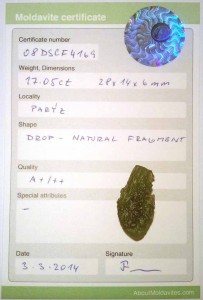 Moldavite certificate
Certificate number
08DSCF4169
Weight, Dimensions
17.05ct 28x14x6mm
Locality
Shape
DROP - NATURAL FRAGMENT
Quality
A+/++
Special attributes
-
Date
Signature
3-3-2014
AboutMoldavites.com